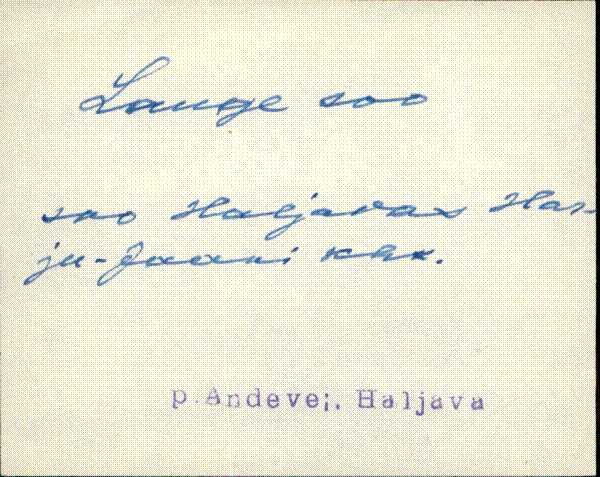 Lauge soo
soo Haljavas Har-
ju-Jaani khk.
p.Andevei, Haljava